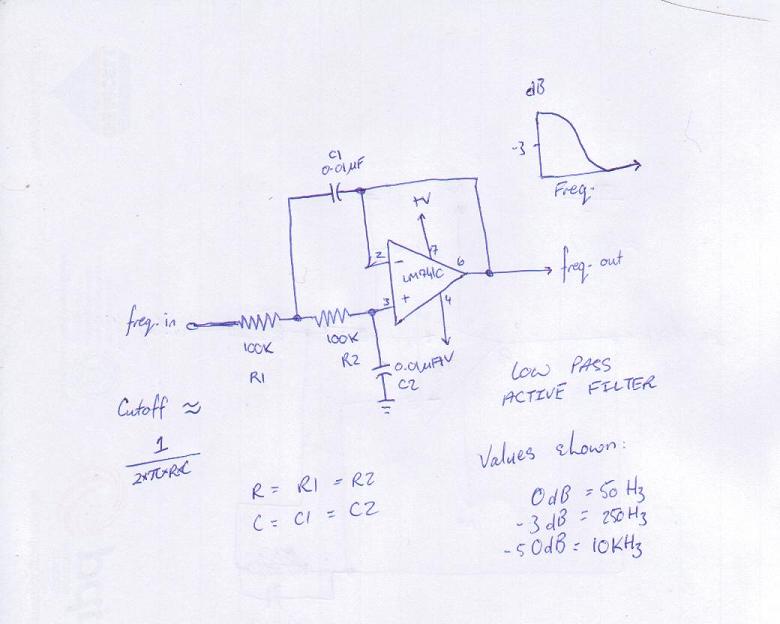 dB
-3
Freq.
C1
0.01µF
+V
2
7
6
LM741C
3
4
freq. in
freq. out
100K
R1
100K
R2
0.01µF
C2
LOW PASS
ACTIVE FILTER
Cutoff ≈
1
2*π*R*C
R = R1 = R2
C = C1 = C2
Values shown:
0dB = 50 Hz
-3dB = 250Hz
-50dB = 10KHz